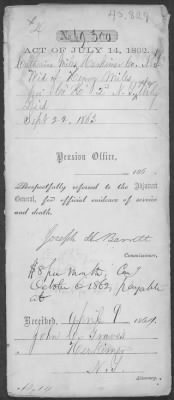 43,829
No 19,300
ACT OF JULY 14, 1862.
Catharine Mills, Herkimer Co. N.Y.
Wid of Henry Mills
Pri Co "D" 2" N.Y.
Died
Sept 22, 1862
Pension Office,
186
Respectfully referred to the Adjutant
General, for official evidence of service
and death.
Joseph H Barrett
Commissioner.
$8 per month, Com'g
October 6 1862, payable
at
Received, April 9 1864.
John C. Graves
Herkimer
N.Y.
Attorney.